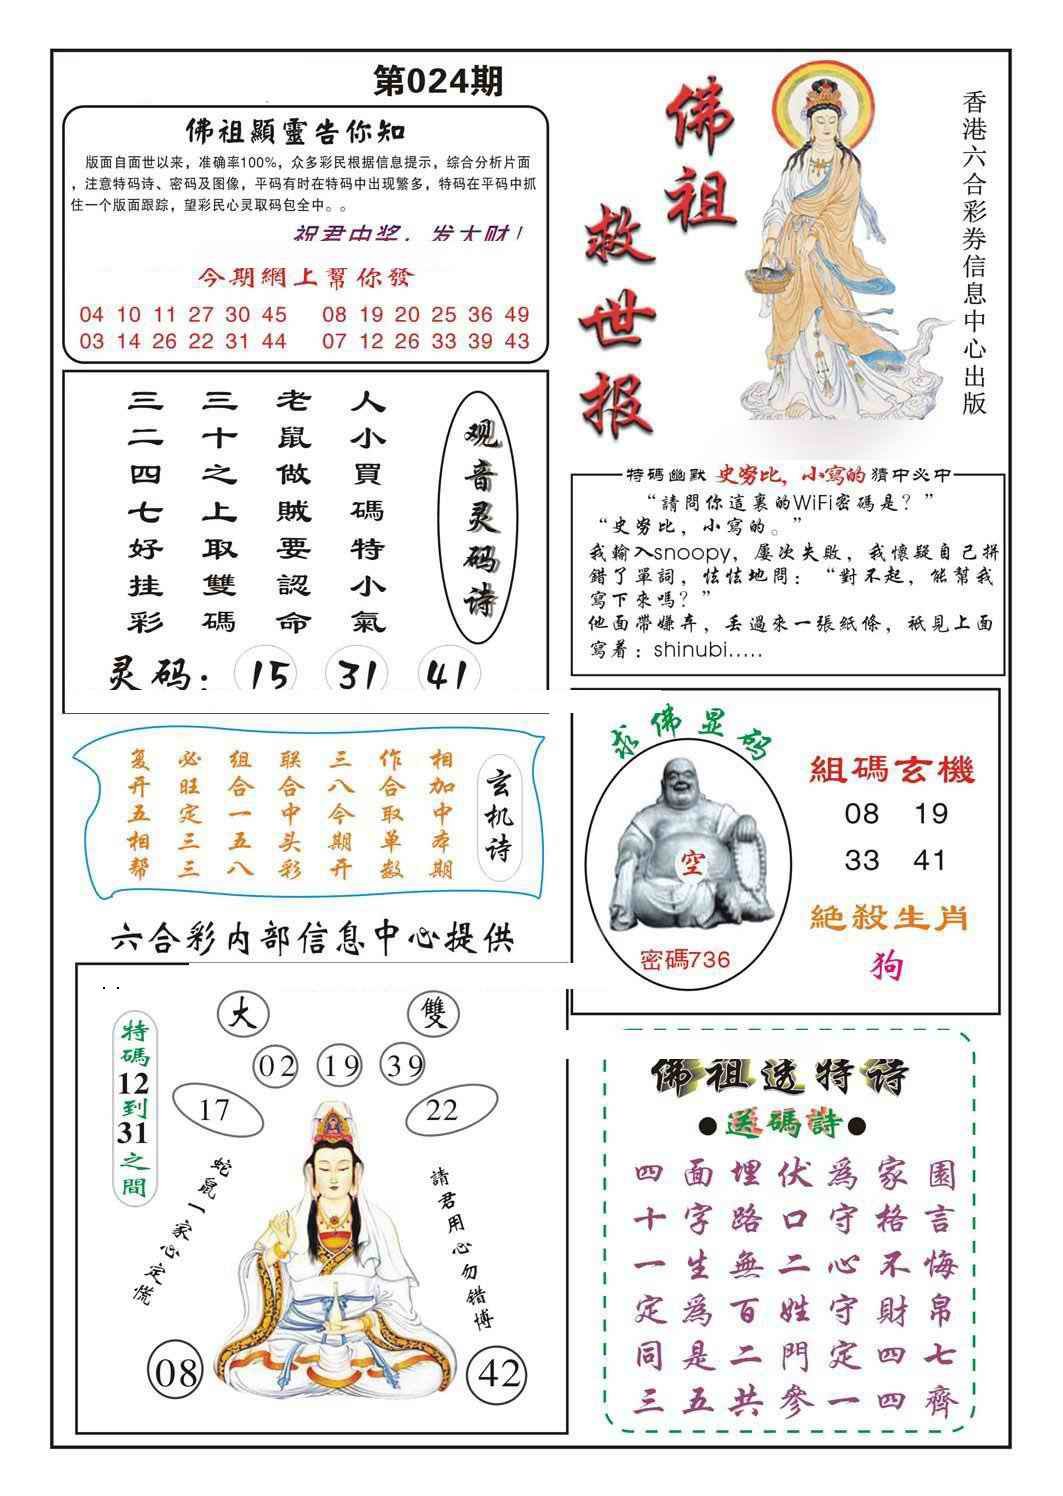 第024期
佛祖顯靈告你知
版面自面世以来，准确率100%，众多彩民根据信息提示，综合分析片面
，注意特码诗、密码及图像，平码有时在特码中出现繁多，特码在平码中抓
住一个版面跟踪，望彩民心灵取码包全中。。
祝君中奖，发大财！
今期網上幫你發
04 10 11 27 30 45 08 19 20 25 36 49
03 14 26 22 31 44 07 12 26 33 39 43
佛祖
救世报
香港六合彩券信息中心出版
观音灵码诗
人小買碼特小氣
老鼠做賊要認命
三十之上取雙碼
三二四七好挂彩
灵码：15 31 41
特碼幽默 史努比，小寫的 猜中必中
“請問你這裏的WiFi密碼是？”
“史努比，小寫的。”
我輸入snoopy，屢次失敗，我懷疑自己拼
錯了單詞，怯怯地問：“對不起，能幫我
寫下來嗎？”
他面帶嫌弃，丢過來一張紙條，衹見上面
寫着：shinubi.....
玄机诗
相加中本期
作合取单数
三八今期开
联合中头彩
组合一五八
必旺定三三
复开五相帮
求佛显码
空
密碼736
組碼玄機
08 19
33 41
絕殺生肖
狗
六合彩内部信息中心提供
大 雙
02 19 39
17 22
特碼12到31之間
蛇鼠一家心定慌
請君用心勿錯博
08 42
佛祖透特诗
●送碼詩●
四面埋伏爲家園
十字路口守格言
一生無二心不悔
定爲百姓守財帛
同是二門定四七
三五共參一四齊